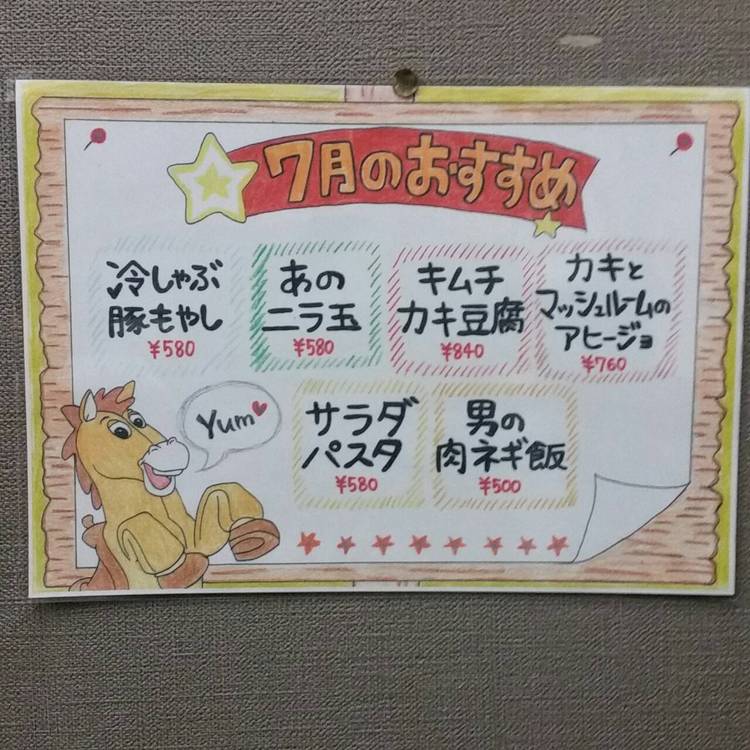 7月のおすすめ
冷しゃぶ
豚もやし
¥580
あの
ニラ玉
¥580
キムチ
カキ豆腐
¥840
カキと
マッシュルームの
アヒージョ
¥760
Yum
サラダ
パスタ
¥580
男の
肉ネギ飯
¥500